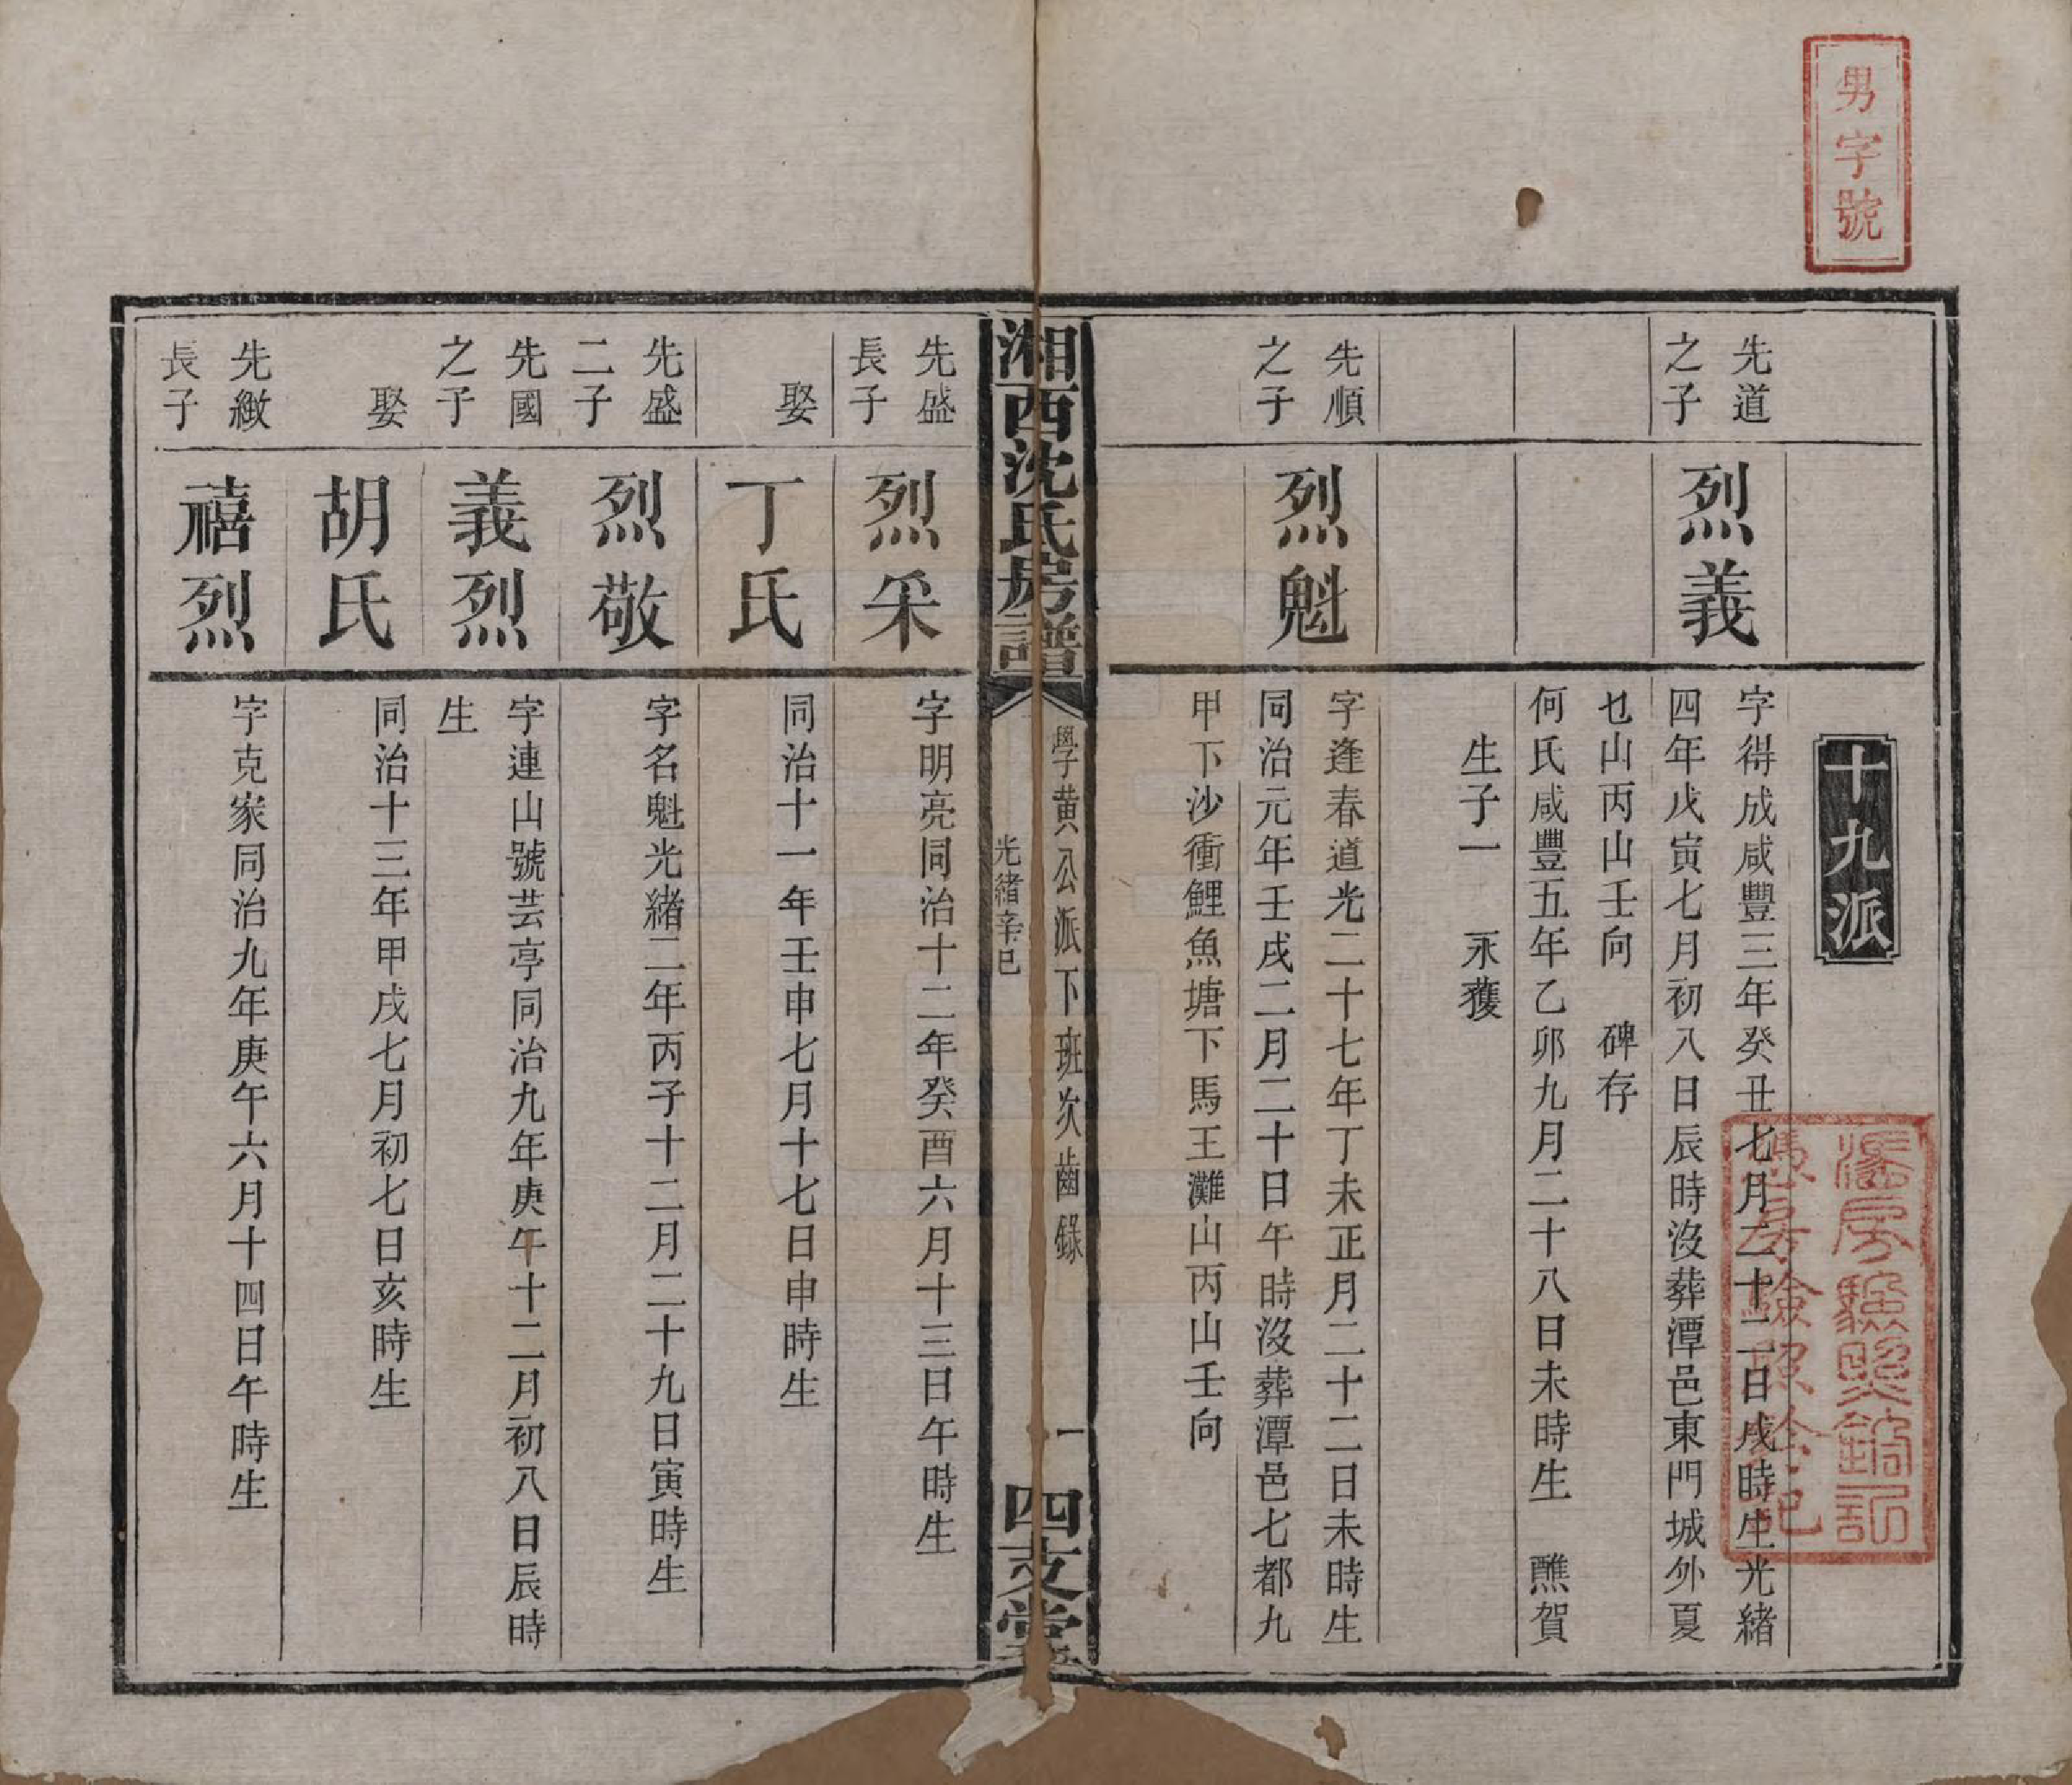 男字號
十九派
先道
之子
烈義
字得成咸豐三年癸丑七月二十二日戌時生光緒
四年戊寅七月初八日辰時沒葬潭邑東門城外夏
乜山丙山壬向　碑存
何氏咸豐五年乙卯九月二十八日未時生　醮賀
生子一　永獲
先順
之子
烈魁
字逢春道光二十七年丁未正月二十二日未時生
同治元年壬戌二月二十日午時沒葬潭邑七都九
甲下沙衝鯉魚塘下馬王灘山丙山壬向
湘西沈氏房譜
學黄公派下班次齒錄
一
光緒辛巳
四支堂
先盛
長子
烈釆
字明亮同治十二年癸酉六月十三日午時生
娶
丁氏
同治十一年壬申七月十七日申時生
先盛
二子
烈敬
字名魁光緒二年丙子十二月二十九日寅時生
先國
之子
義烈
字連山號芸亭同治九年庚午十二月初八日辰時
生
娶
胡氏
同治十三年甲戌七月初七日亥時生
先緻
長子
禧烈
字克家同治九年庚午六月十四日午時生